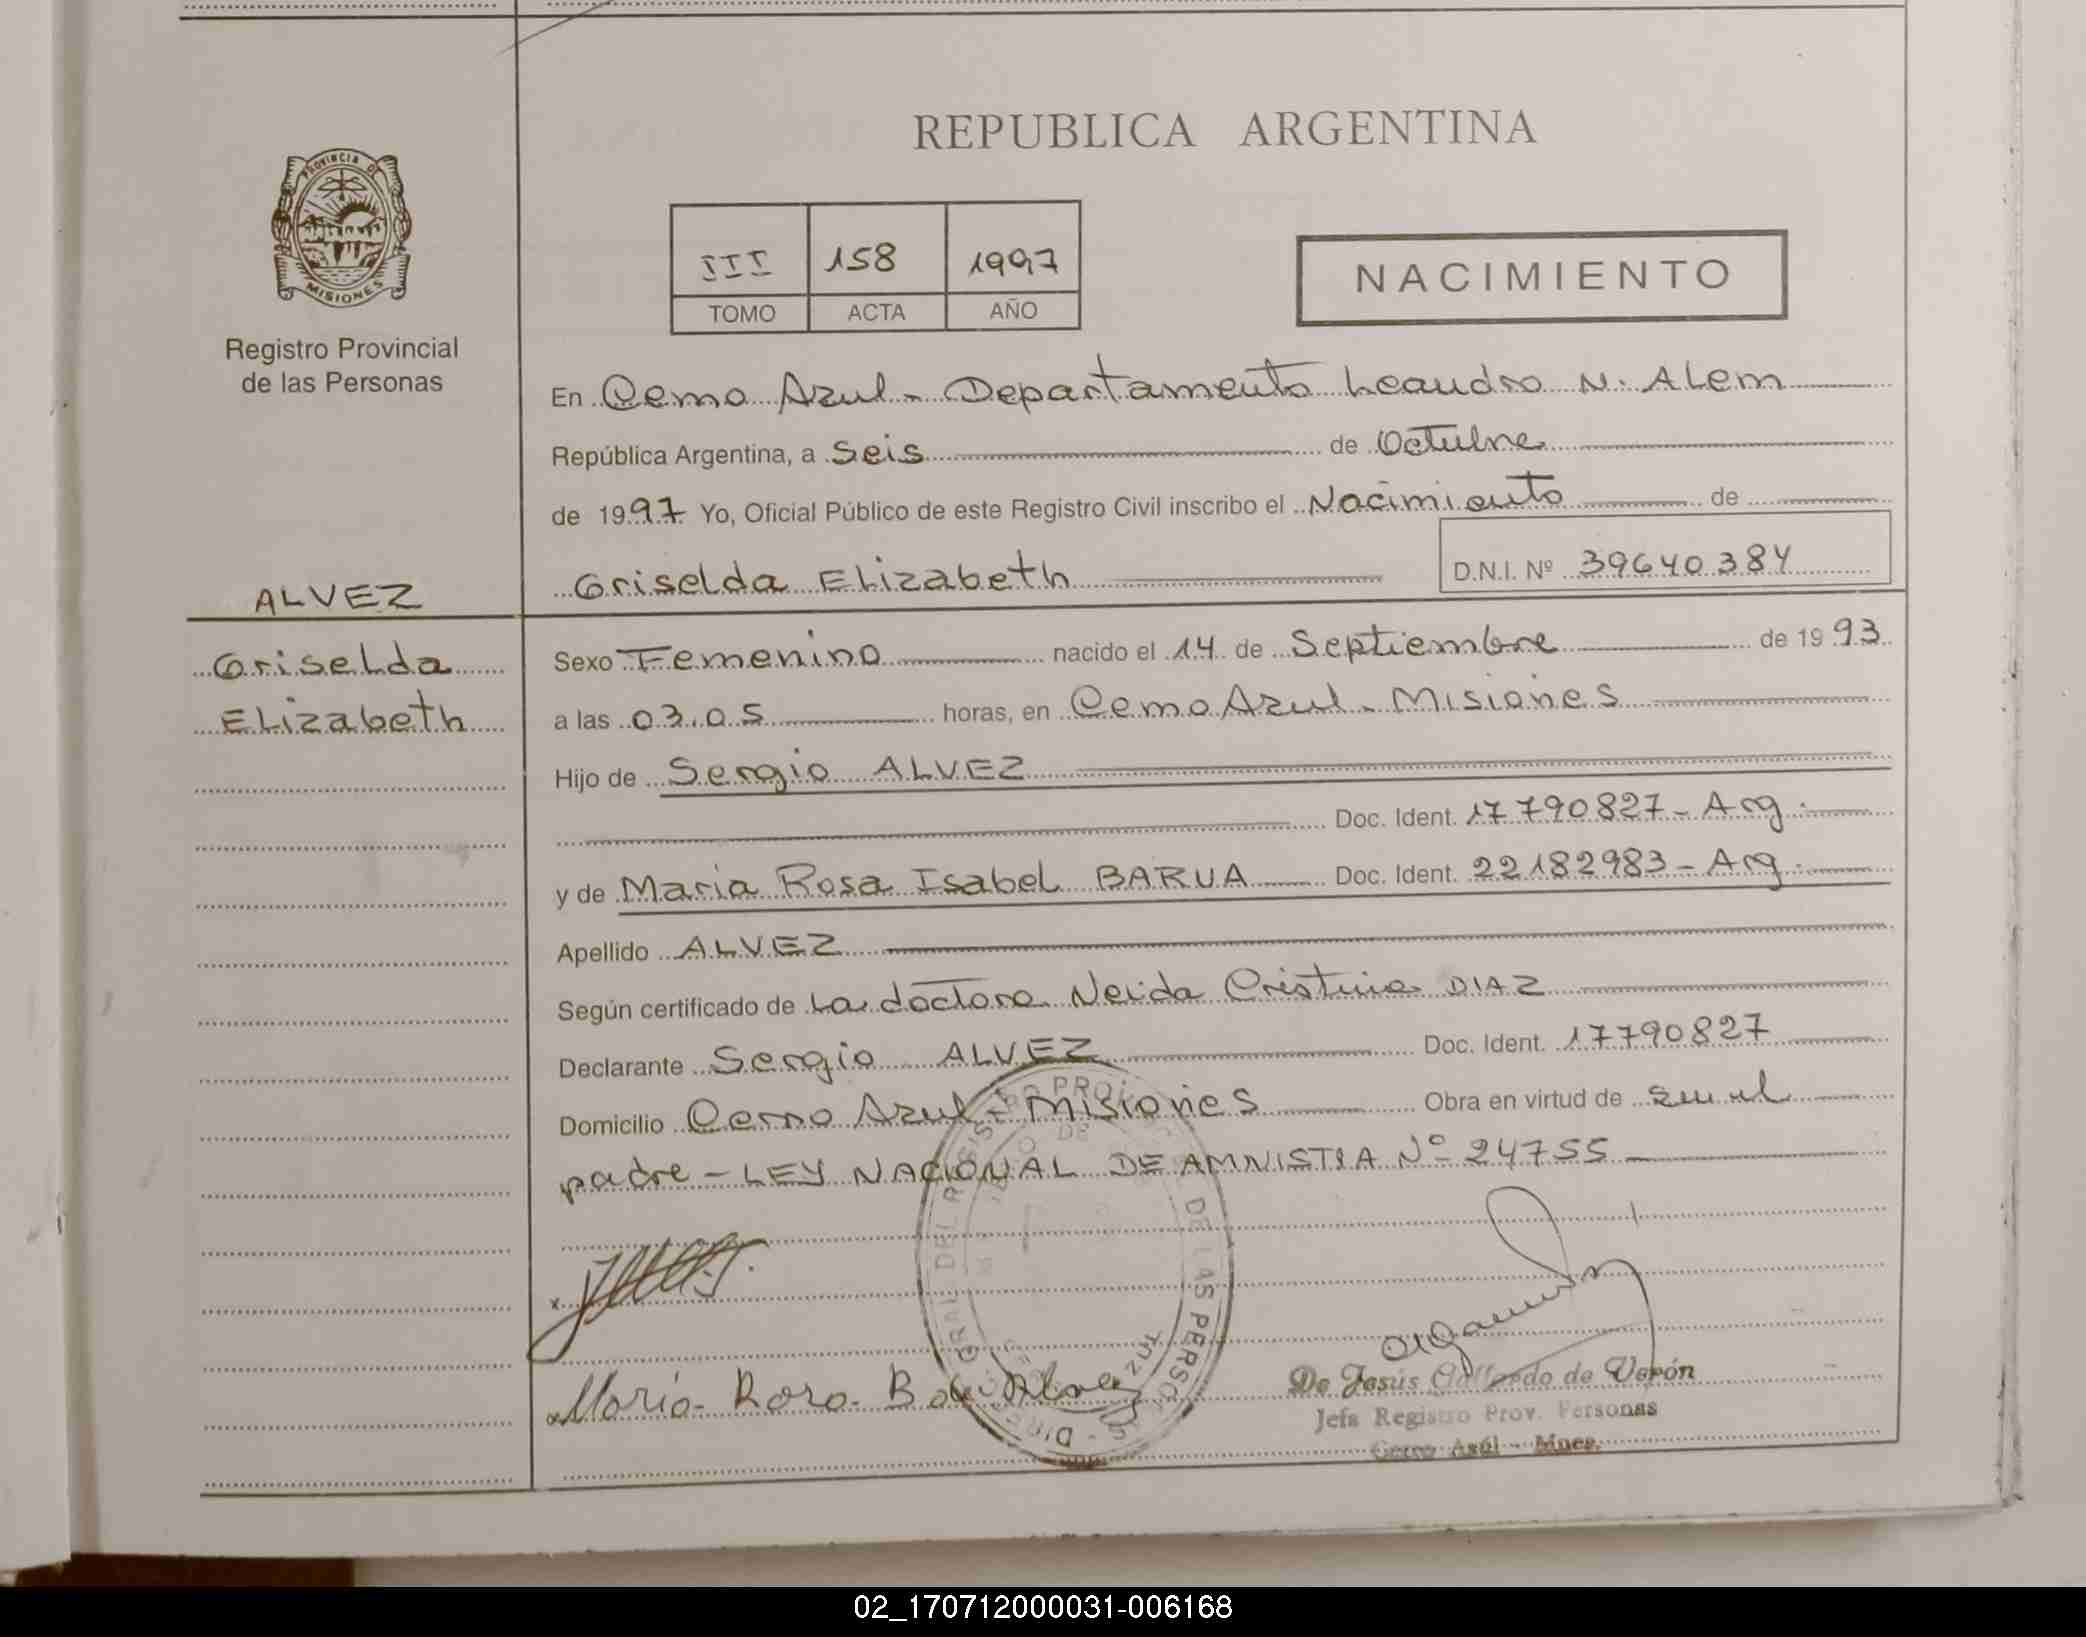 REPUBLICA ARGENTINA
PROVINCIA DE
MISIONES
Registro Provincial
de las Personas
III 158 1997
TOMO ACTA AÑO
NACIMIENTO
En Cerro Azul - Departamento Leandro N. Alem
República Argentina, a Seis de Octubre
de 1997 Yo, Oficial Público de este Registro Civil inscribo el Nacimiento de
Griselda Elizabeth D.N.I. Nº 39640384
ALVEZ
Griselda
Elizabeth
Sexo Femenino nacido el 14 de Septiembre de 1993
a las 03.05 horas, en Cerro Azul - Misiones
Hijo de Sergio ALVEZ
Doc. Ident. 17790827 - Arg.
y de Maria Rosa Isabel BARUA Doc. Ident. 22182983 - Arg.
Apellido ALVEZ
Según certificado de La doctora Neida Cristina DIAZ
Declarante Sergio ALVEZ Doc. Ident. 17790827
Domicilio Cerro Azul - Misiones Obra en virtud de ser el
padre - LEY NACIONAL DE AMNISTIA Nº 24755
Maria Rosa B de Alvez
De Jesús Gallardo de Verón
Jefa Registro Prov. Personas
Cerro Azúl - Mnes.
DE LAS PERSONAS
02_170712000031-006168